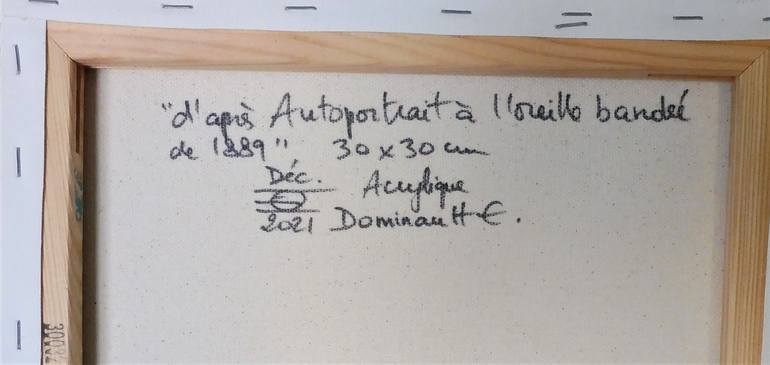 "d'après Autoportrait à l'oreille bandée
de 1889" 30 x 30 cm
Déc. Acrylique
2021 Dominault E.
30032